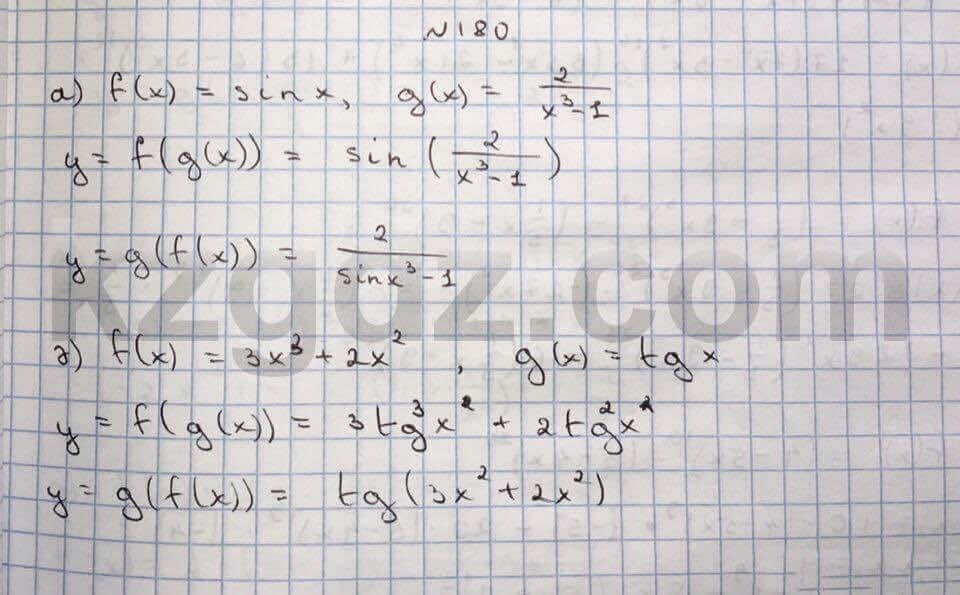 №180
а) f(x) = sin x, g(x) = 2/(x³-1)
y = f(g(x)) = sin (2/(x³-1))
y = g(f(x)) = 2/(sinx³-1)
kzgdz.com
ә) f(x) = 3x³ + 2x², g(x) = tg x
y = f(g(x)) = 3tg³x² + 2tg²x²
y = g(f(x)) = tg(3x² + 2x²)